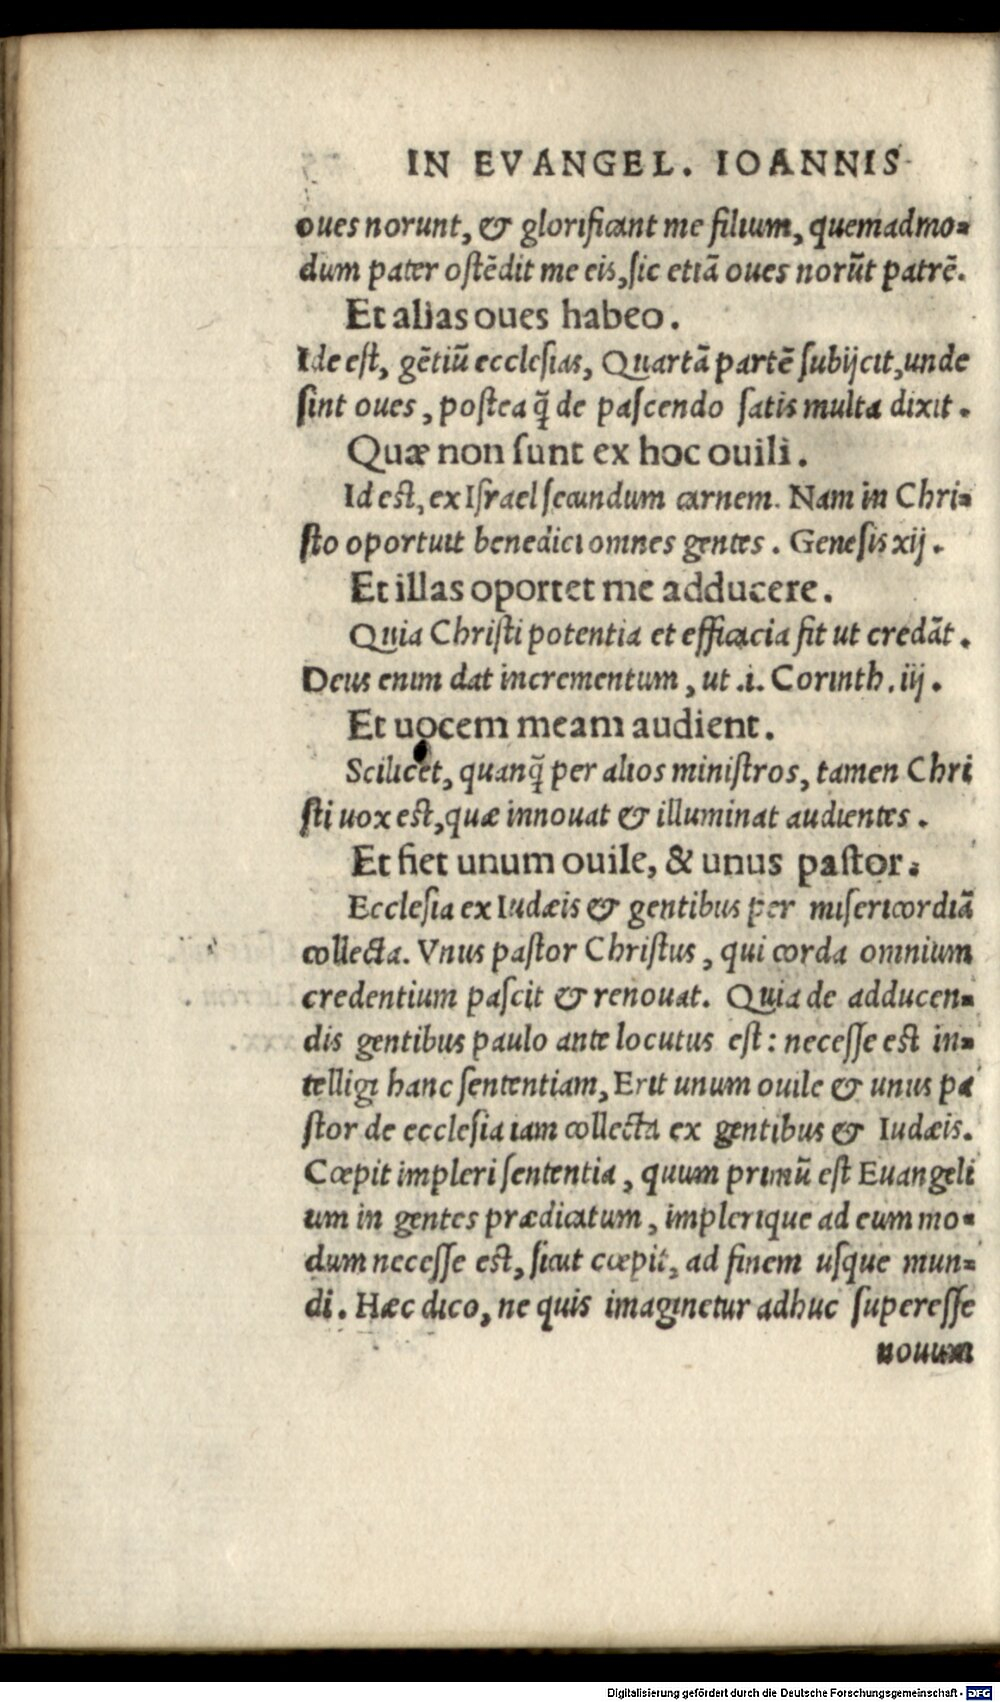 IN EVANGEL. IOANNIS
oues norunt, & glorificant me filium, quemadmo-
dum pater ostēdit me eis, sic etiā oues norūt patrē.
Et alias oues habeo.
Id e est, gētiū ecclesias, Quartā partē subijcit, unde
sint oues, postea q̄ de pascendo satis multa dixit.
Quæ non sunt ex hoc ouili.
Id est, ex Israel secundum carnem. Nam in Chri-
sto oportuit benedici omnes gentes. Genesis xij.
Et illas oportet me adducere.
Quia Christi potentia et efficacia fit ut credāt.
Deus enim dat incrementum, ut .i. Corinth. iij.
Et uocem meam audient.
Scilicet, quanq̄ per alios ministros, tamen Chri
sti uox est, quæ innouat & illuminat audientes.
Et fiet unum ouile, & unus pastor.
Ecclesia ex Iudæis & gentibus per misericordiā
collecta. Vnus pastor Christus, qui corda omnium
credentium pascit & renouat. Quia de adducen-
dis gentibus paulo ante locutus est: necesse est in-
telligi hanc sententiam, Erit unum ouile & unus pa
stor de ecclesia iam collecta ex gentibus & Iudæis.
Cœpit impleri sententia, quum primū est Euangeli
um in gentes prædicatum, implerique ad eum mo-
dum necesse est, sicut cœpit, ad finem usque mun-
di. Hæc dico, ne quis imaginetur adhuc superesse
nouum
Digitalisierung gefördert durch die Deutsche Forschungsgemeinschaft - DFG